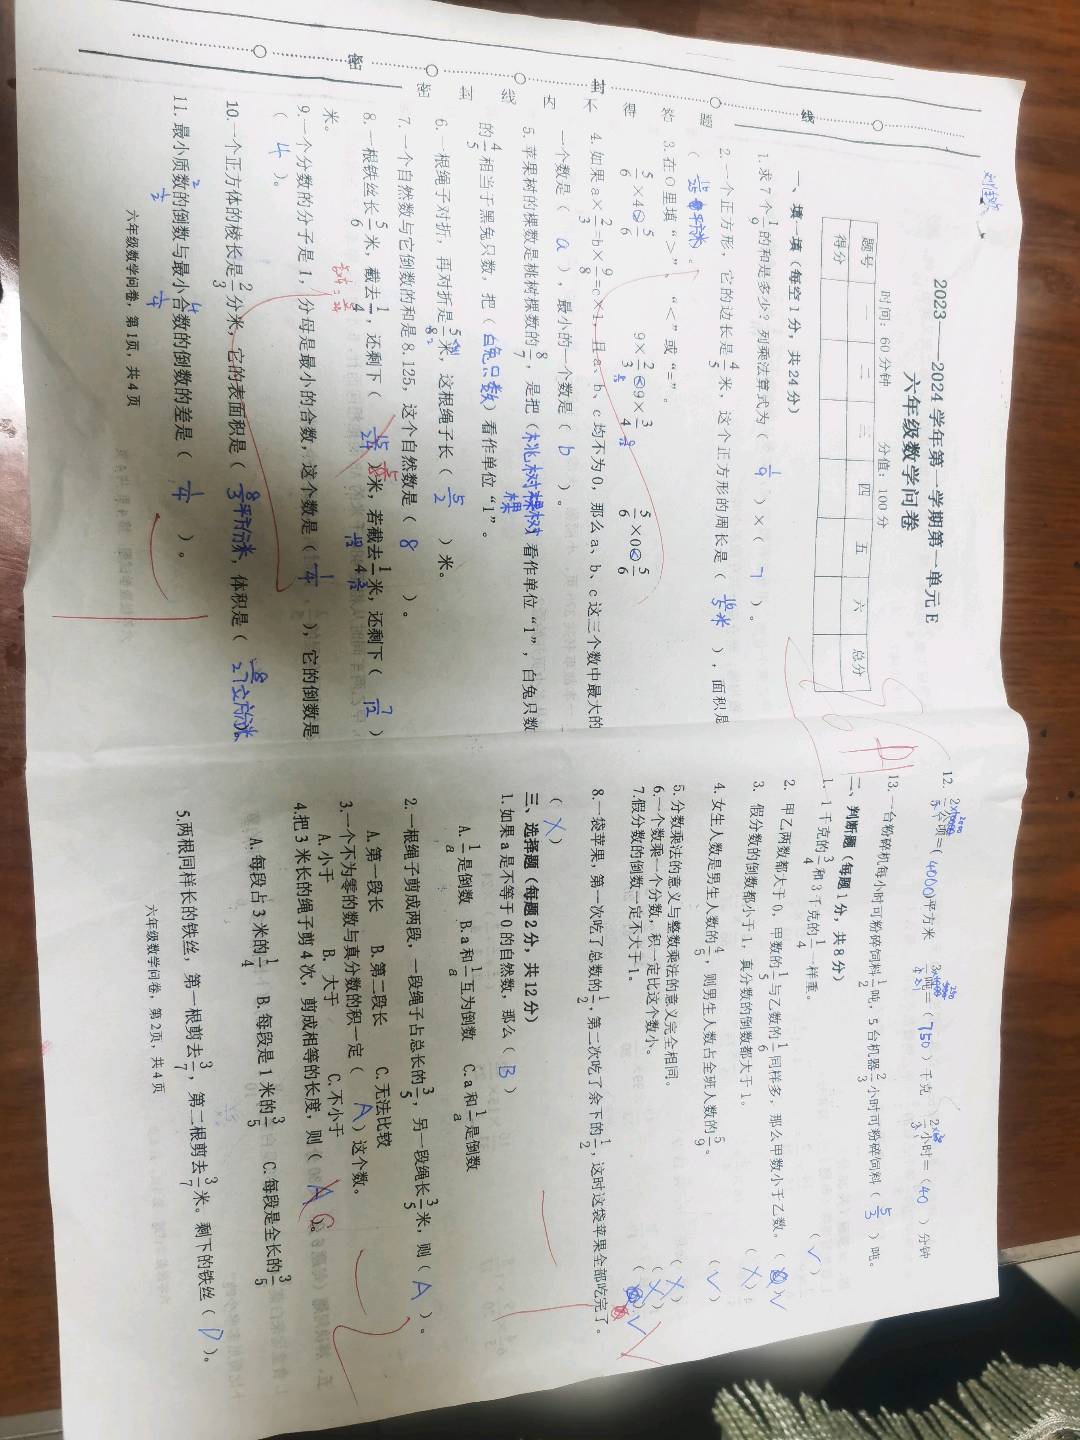 线
封
密
题
答
得
不
内
线
封
密
2023——2024学年第一学期第一单元E
六年级数学问卷
时间：60分钟 分值：100分
题号 一 二 三 四 五 六 总分
得分
一、填一填（每空1分，共24分）
1.求7个1/9的和是多少？列乘法算式为（ 1/9 ）×（ 7 ）。
2.一个正方形，它的边长是4/5米，这个正方形的周长是（ 16/5米 ），面积是
（ 16/25平方米 ）。
3.在O里填“>”、“<”或“=”。
5/6×4 > 5/6 9×2/3 < 9×3/4 5/6×0 < 5/6
4.如果a×2/3=b×9/8=c×1,且a、b、c均不为0，那么a、b、c这三个数中最大的
一个数是（ a ），最小的一个数是（ b ）。
5.苹果树的棵数是桃树棵数的8/7，是把（桃树棵树）看作单位“1”，白兔只数
棵
的4/5相当于黑兔只数，把（白兔只数）看作单位“1”。
6.一根绳子对折，再对折是5/8米，这根绳子长（ 5/2 ）米。
7.一个自然数与它倒数的和是8.125，这个自然数是（ 8 ）。
8.一根铁丝长5/6米，截去1/4，还剩下（ 15/24 ）米，若截去1/4米，还剩下（ 7/12 ）
米。
9.一个分数的分子是1，分母是最小的合数，这个数是（ 1/4 ），它的倒数是
（ 4 ）。
10.一个正方体的棱长是2/3分米，它的表面积是（ 8/3平方分米，体积是（ 8/27立方分米
11.最小质数的倒数与最小合数的倒数的差是（ 1/4 ）。
2 4
1/2 1/4
六年级数学问卷，第1页，共4页
12. 2/5公顷=（4000）平方米 3/4吨=（750）千克 2/3小时=（40）分钟
13.一台粉碎机每小时可粉碎饲料1/2吨，5台机器2/3小时可粉碎饲料（ 5/3 ）吨。
二、判断题（每题1分，共8分）
1. 1千克的3/4和3千克的1/4一样重。 （ √ ）
2. 甲乙两数都大于0，甲数的1/5与乙数的1/6同样多，那么甲数小于乙数。（ √
3. 假分数的倒数都小于1，真分数的倒数都大于1。 （ X ）
4.女生人数是男生人数的4/5，则男生人数占全班人数的5/9。 （ √ ）
5.分数乘法的意义与整数乘法的意义完全相同。 （ X ）
6.一个数乘一个分数，积一定比这个数小。 （ X ）
7.假分数的倒数一定不大于1。 （ √
8.一袋苹果，第一次吃了总数的1/2，第二次吃了余下的1/2，这时这袋苹果全部吃完了。
（ X ）
三、选择题（每题2分，共12分）
1.如果a是不等于0的自然数，那么（ B ）
A.1/a是倒数 B.a和1/a互为倒数 C.a和1/a是倒数
2.一根绳子剪成两段，一段绳子占总长的3/5，另一段绳长3/5米，则（ A ）。
A.第一段长 B.第二段长 C.无法比较
3.一个不为零的数与真分数的积一定（ A ）这个数。
A.小于 B. 大于 C.不小于
4.把3米长的绳子剪4次，剪成相等的长度，则（ A ）。
A.每段占3米的1/4 B.每段是1米的3/5 C.每段是全长的3/5
5.两根同样长的铁丝，第一根剪去3/7，第二根剪去3/7米。剩下的铁丝（ D ）。
六年级数学问卷，第2页，共4页